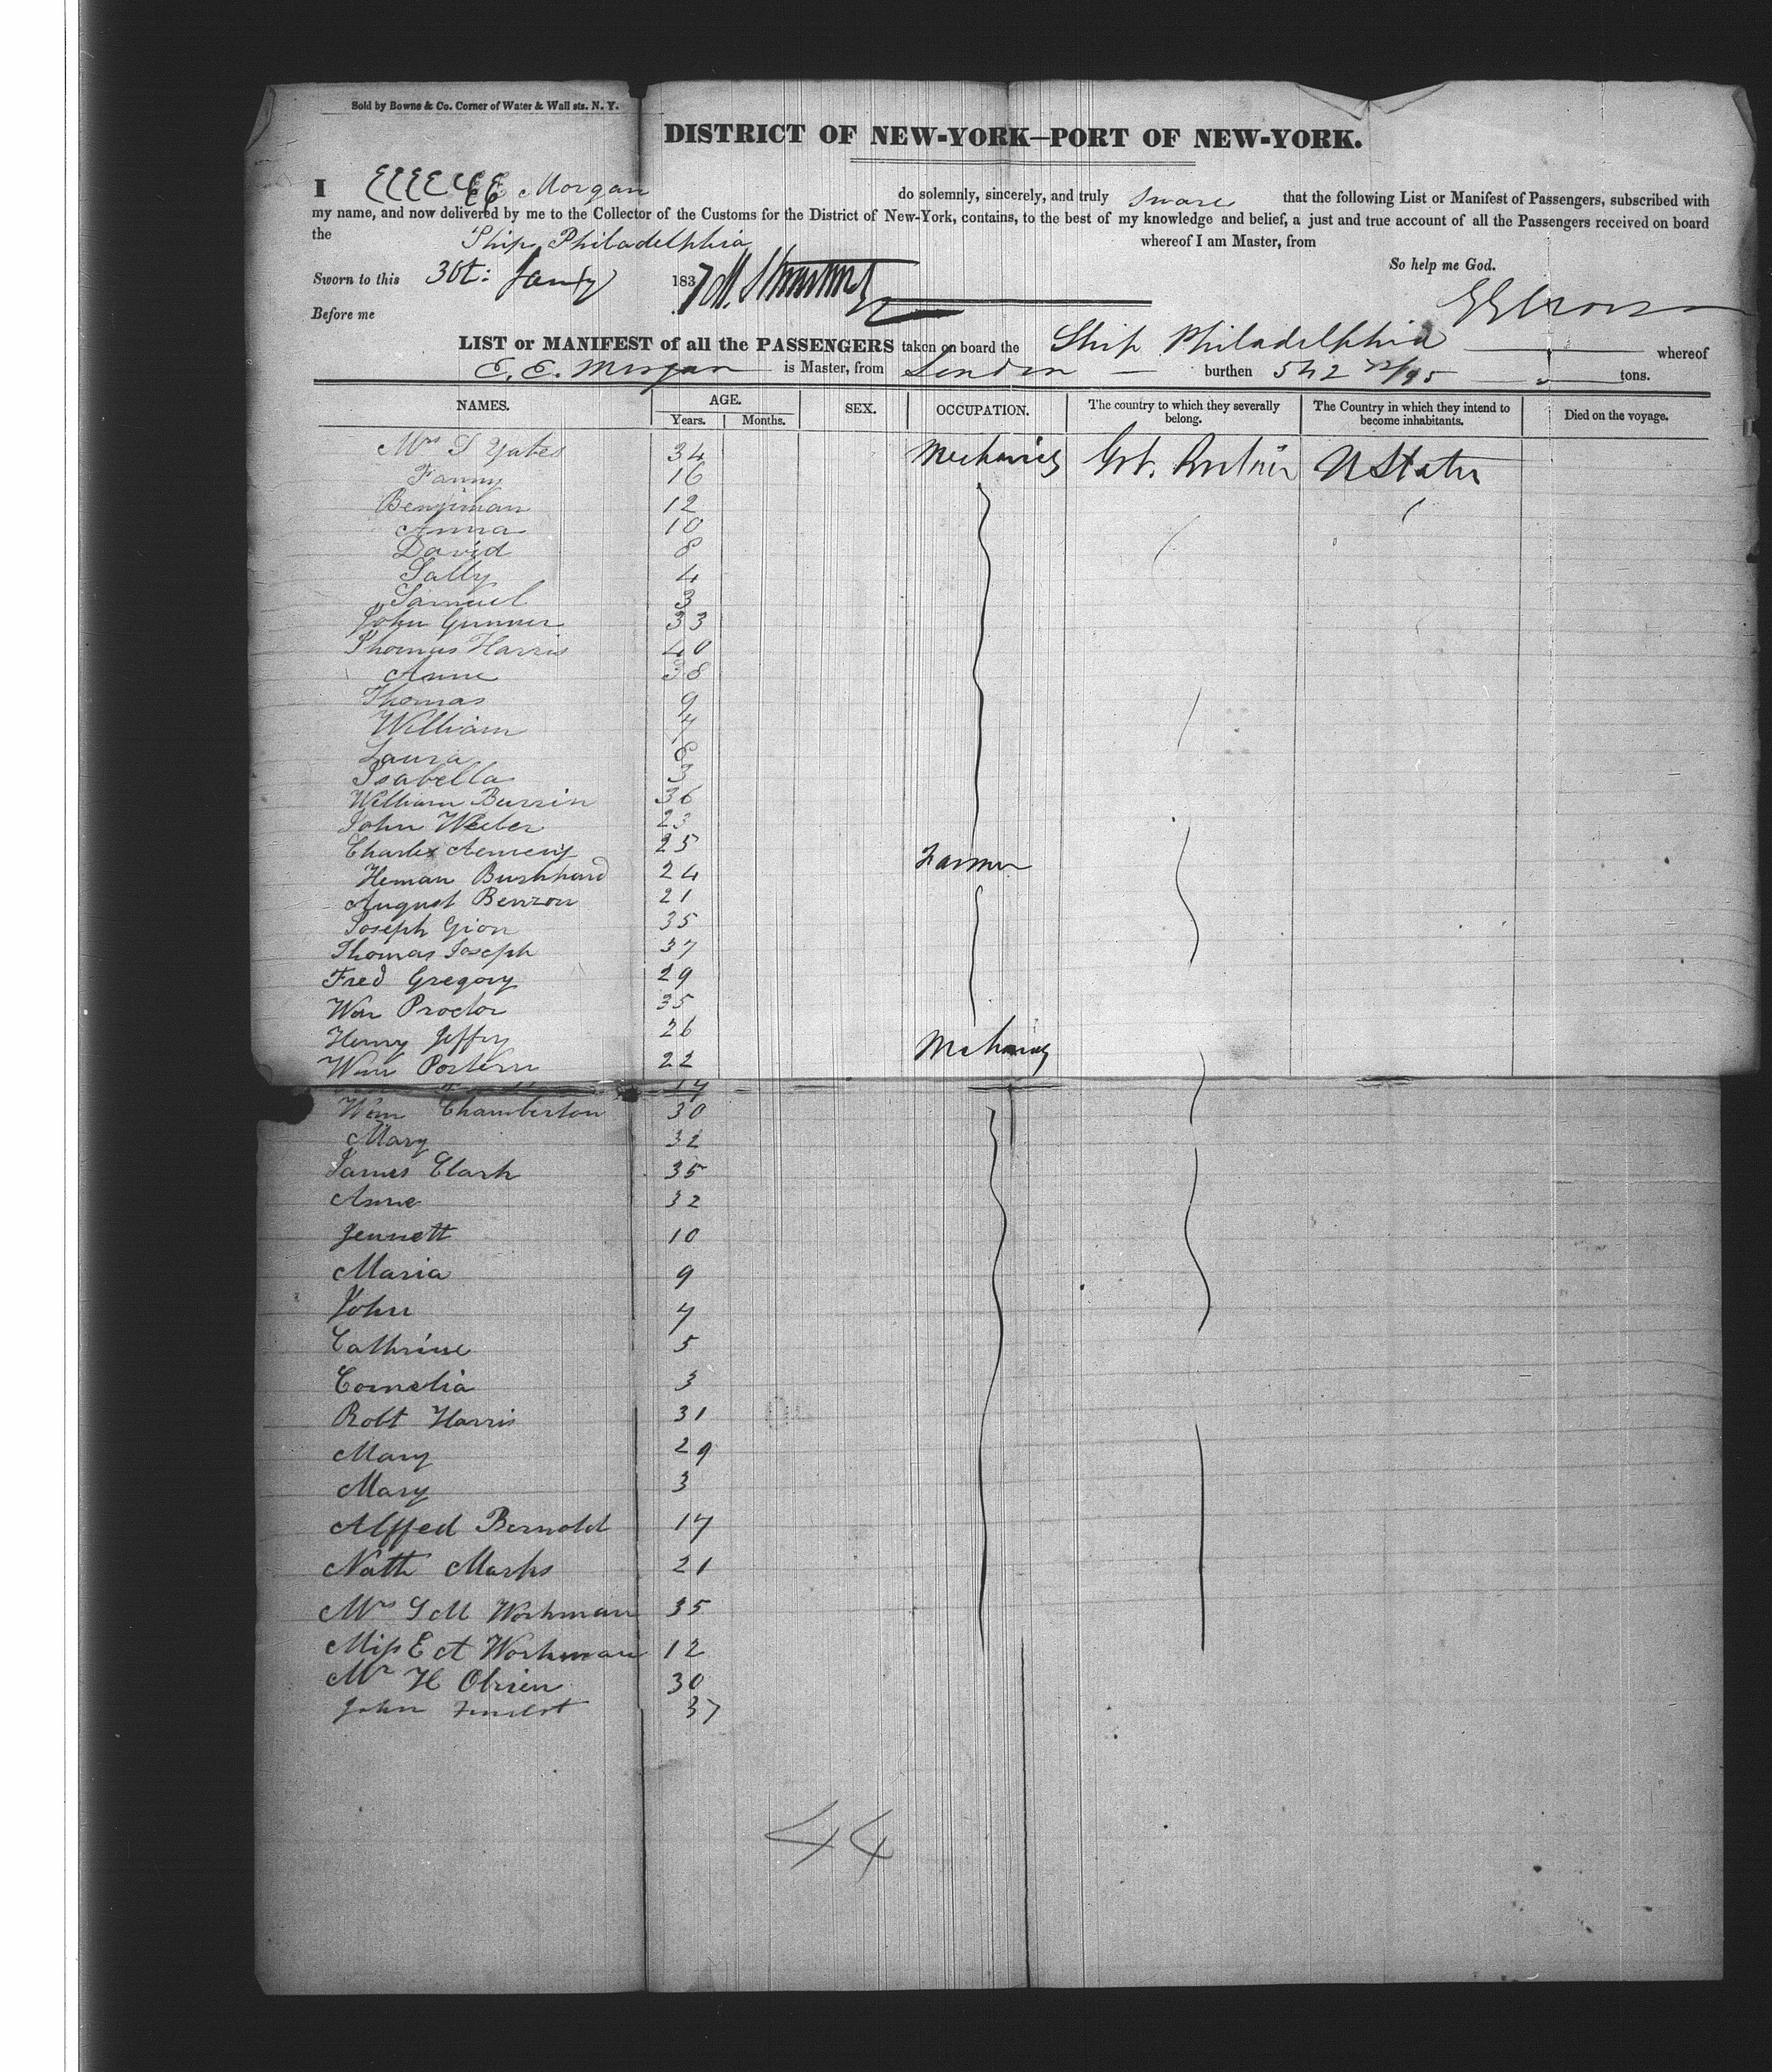 Sold by Bowne & Co. Corner of Water & Wall sts. N. Y.
DISTRICT OF NEW-YORK—PORT OF NEW-YORK.
I E E Morgan do solemnly, sincerely, and truly sware that the following List or Manifest of Passengers, subscribed with
my name, and now delivered by me to the Collector of the Customs for the District of New-York, contains, to the best of my knowledge and belief, a just and true account of all the Passengers received on board
the Ship Philadelphia whereof I am Master, from
So help me God.
Sworn to this 30t: Jany 1837
Before me
LIST or MANIFEST of all the PASSENGERS taken on board the Ship Philadelphia whereof
E. E. Morgan is Master, from London burthen 542 72/95 tons.
NAMES. AGE. Years. Months. SEX. OCCUPATION. The country to which they severally belong. The Country in which they intend to become inhabitants. Died on the voyage.
Mrs S Yates 34 Mechanics Grt. Britain U States
Fanny 16
Benjiman 12
Anna 10
David 8
Sally 4
Samuel 3
John Gunner 33
Thomas Harris 40
Anne 38
Thomas 9
William
Laura
Isabella 3
William Burrin 36
John Weber 23
Charles 25 Farmer
Heman Bushhard 24
August Benzon 21
Joseph Gion 35
Thomas Joseph 37
Fred Gregory 29
Wm Proctor 35
Henry Jeffry 26
Wm Portern 22 Mechanics
17
Wm Chamberton 30
Mary 32
James Clark 35
Anne 32
Jennett 10
Maria 9
John 7
Cathrine 5
Cornelia 3
Robt Harris 31
Mary 29
Mary 3
Alffed Bernold 17
Nath Marks 21
Mrs S M Workman 35
Miss E A Workman 12
Mr H Obrien 30
John 37
44